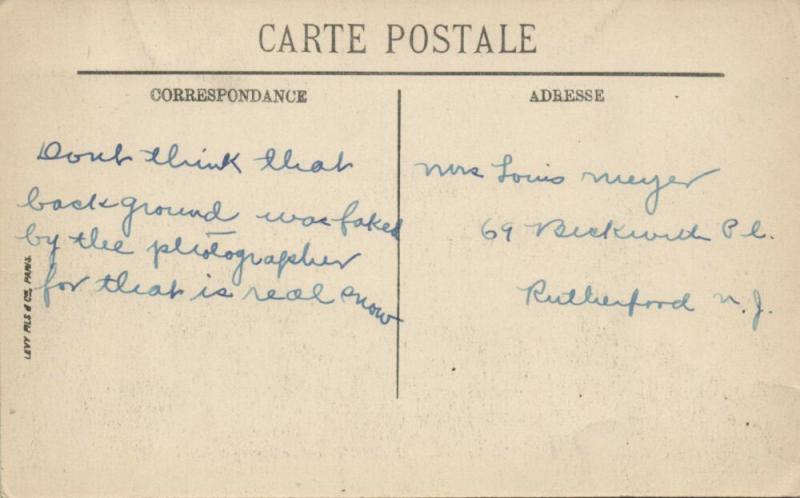 CARTE POSTALE
CORRESPONDANCE
Dont think that
background was faked
by the photographer
for that is real snow
LEVY FILS & Co. PARIS.
ADRESSE
Mrs Louis Meyer
69 Beckwith Pl.
Rutherford N.J.